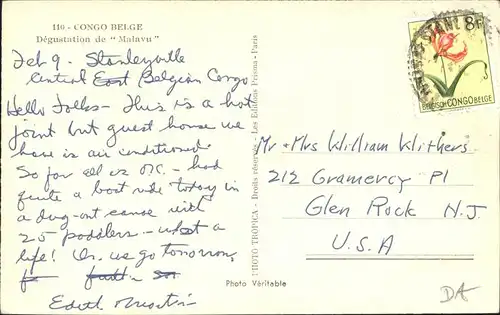 110 - CONGO BELGE
Dégustation de "Malavu"
Feb 9. Stanleyville
Central East Belgian Congo
Hello Folks - This is a hot
joint but guest house we
have is air conditioned
So far all is OK. - had
quite a boat ride today in
a dug-out canoe with
25 paddlers - what a
life! On we go tomorrow,
Edith
PHOTO TROPICA - Droits réservés - Les Editions Prisma - Paris
Photo Véritable
8F
BELGISCH CONGO BELGE
Mr + Mrs William Withers
212 Gramercy Pl
Glen Rock N.J.
U.S.A
DA